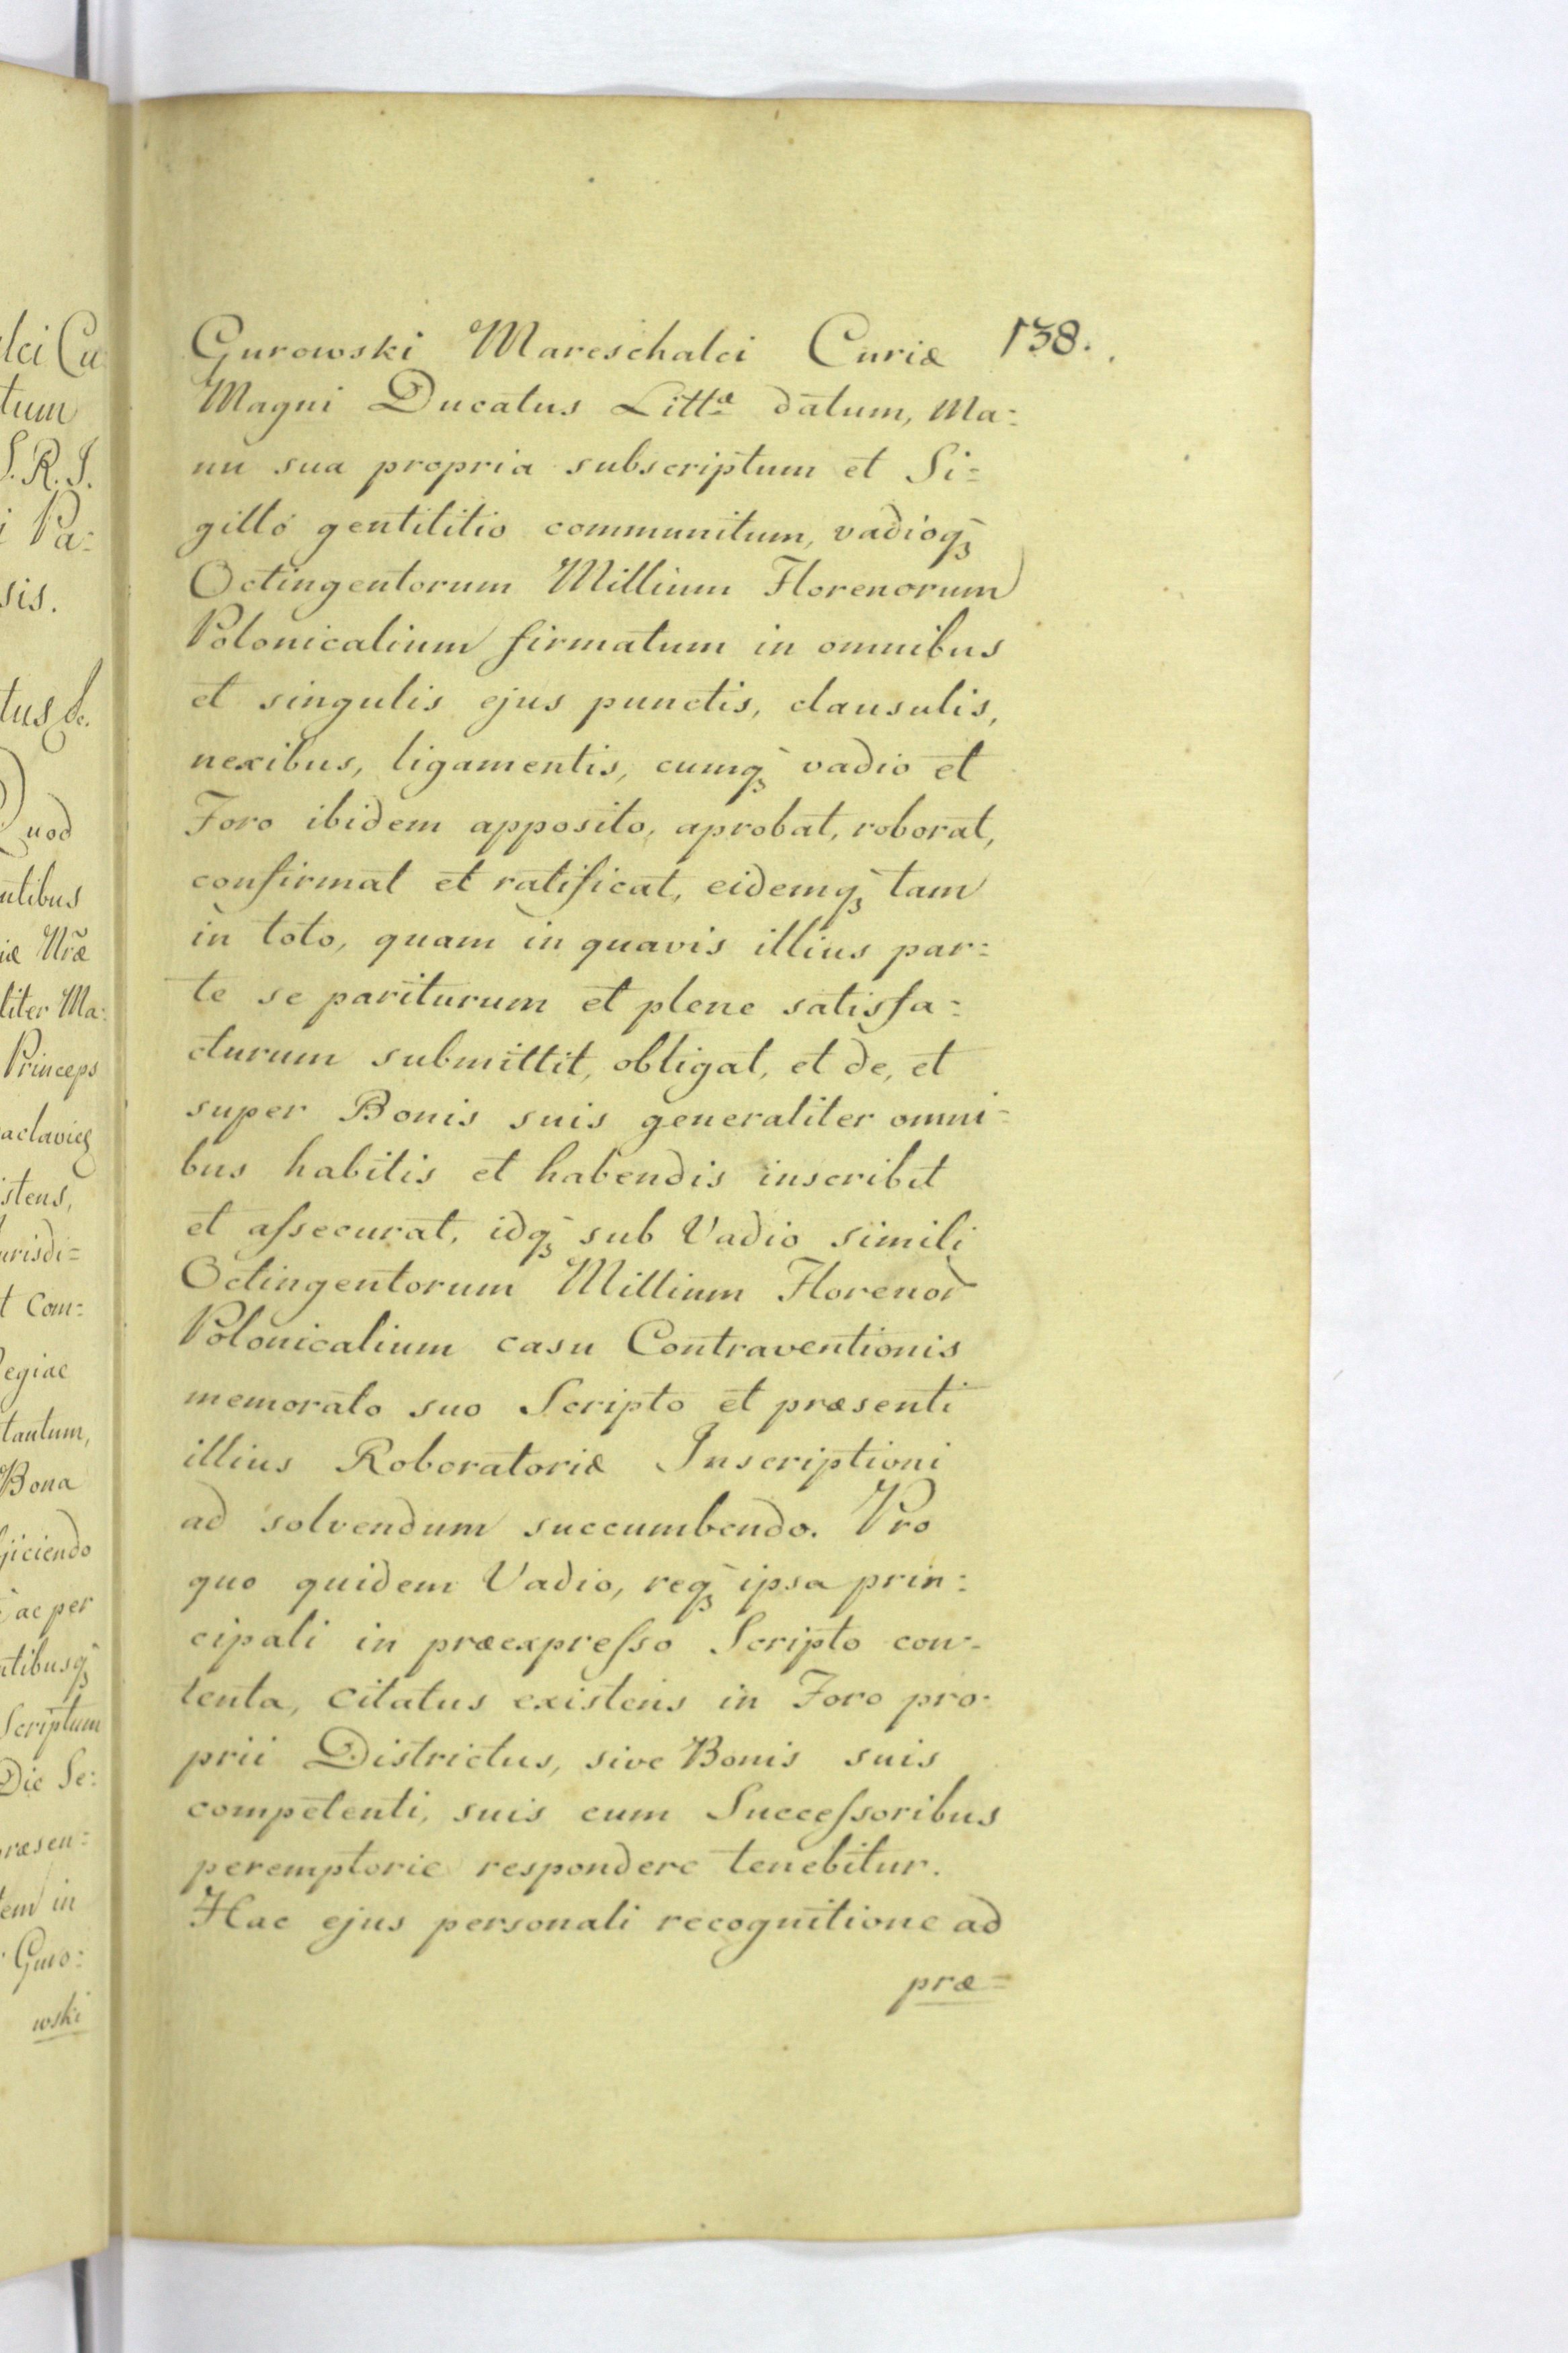 Gurowski Mareschalci Curiæ 138.
Magni Ducatus Littæ datum, Ma:
nu sua propria subscriptum et Si=
gilló gentilitio communitum, vadioqꝫ
Octingentorum Millium Florenorum
Polonicalium firmatum in omnibus
et singulis ejus punctis, clausulis,
nexibus, ligamentis, cumqꝫ vadio et
Foro ibidem apposito, aprobat, roborat,
confirmat et ratificat, eidemqꝫ tam
in toto, quam in quavis illius par=
te se pariturum et plene satisfa=
cturum submittit, obligat, et de, et
super Bonis suis generaliter omni=
bus habitis et habendis inscribit
et aſsecurat, idqꝫ sub Vadio simili
Octingentorum Millium Florenor
Polonicalium casu Contraventionis
memorato suo Scripto et præsenti
illius Roboratoriæ Inscriptioni
ad solvendum succumbendo. Pro
quo quidem Vadio, reqꝫ ipsa prin:
cipali in præexpreſso Scripto con=
tenta, citatus existens in Foro pro=
prii Districtus, sive Bonis suis
competenti, suis cum Succeſsoribus
peremptorie respondere tenebitur.
Hac ejus personali recognitione ad
præ=
lci Cu
tum
S.R.I.
i Pa:
sis.
tus
Quod
ntibus
iæ Nræ
liter Ma:
Princeps
istens,
urisdi=
t Com:
egiae
tantum,
Bona
jiciendo
ac per
ntibusqꝫ
Scriptum
Die Se:
præsen=
em in
Guro:
wski